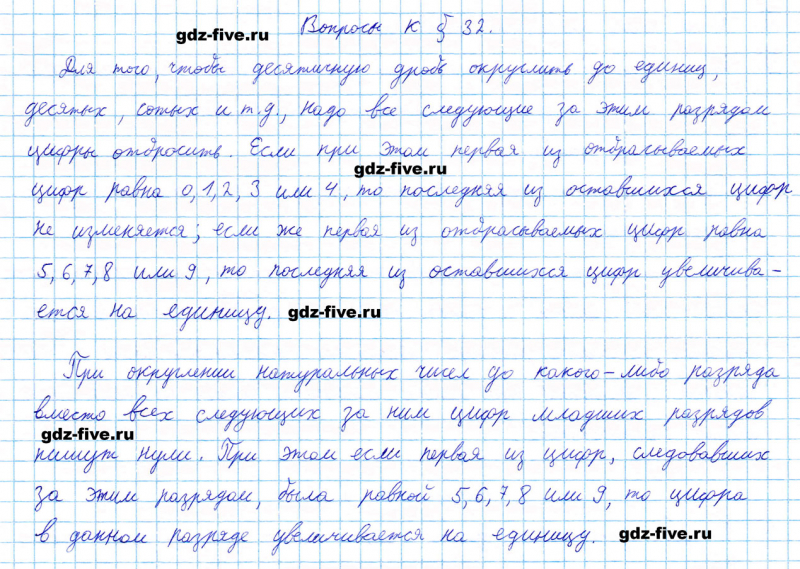 Вопросы к § 32.
gdz-five.ru
Для того, чтобы десятичную дробь округлить до единиц,
десятых, сотых и т.д., надо все следующие за этим разрядом
цифры отбросить. Если при этом первая из отбрасываемых
gdz-five.ru
цифр равна 0, 1, 2, 3 или 4, то последняя из оставшихся цифр
не изменяется; если же первая из отбрасываемых цифр равна
5, 6, 7, 8 или 9, то последняя из оставшихся цифр увеличива-
ется на единицу. gdz-five.ru
При округлении натуральных чисел до какого-либо разряда
вместо всех следующих за ним цифр младших разрядов
gdz-five.ru
пишут нули. При этом если первая из цифр, следовавших
за этим разрядом, была равной 5, 6, 7, 8 или 9, то цифра
в данном разряде увеличивается на единицу. gdz-five.ru